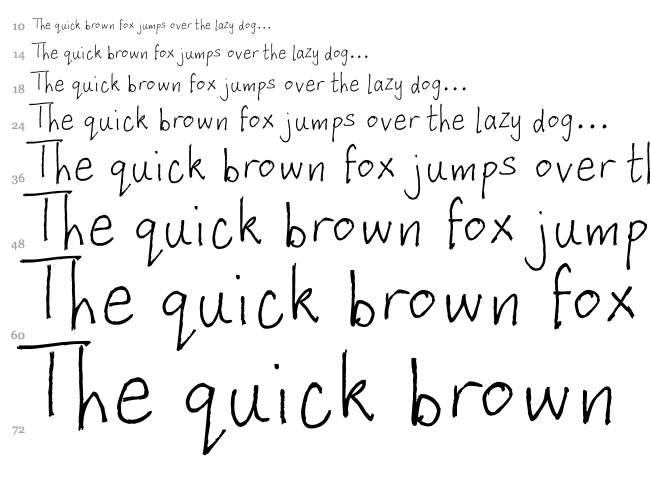 10 The quick brown fox jumps over the lazy dog...
14 The quick brown fox jumps over the lazy dog...
18 The quick brown fox jumps over the lazy dog...
24 The quick brown fox jumps over the lazy dog...
36 The quick brown fox jumps over tl
48 The quick brown fox jump
60 The quick brown fox
72 The quick brown